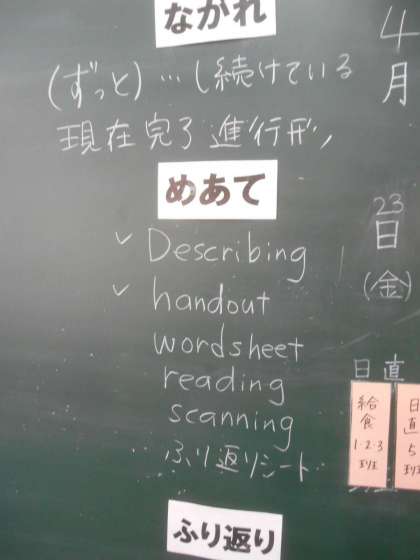 ながれ
(ずっと)…し続けている
現在完了進行形
めあて
✓ Describing
✓ handout
wordsheet
reading
scanning
ふり返りシート
ふり返り
4
月
23
日
(金)
日直
給食
1·2·3
班
日直
5
班